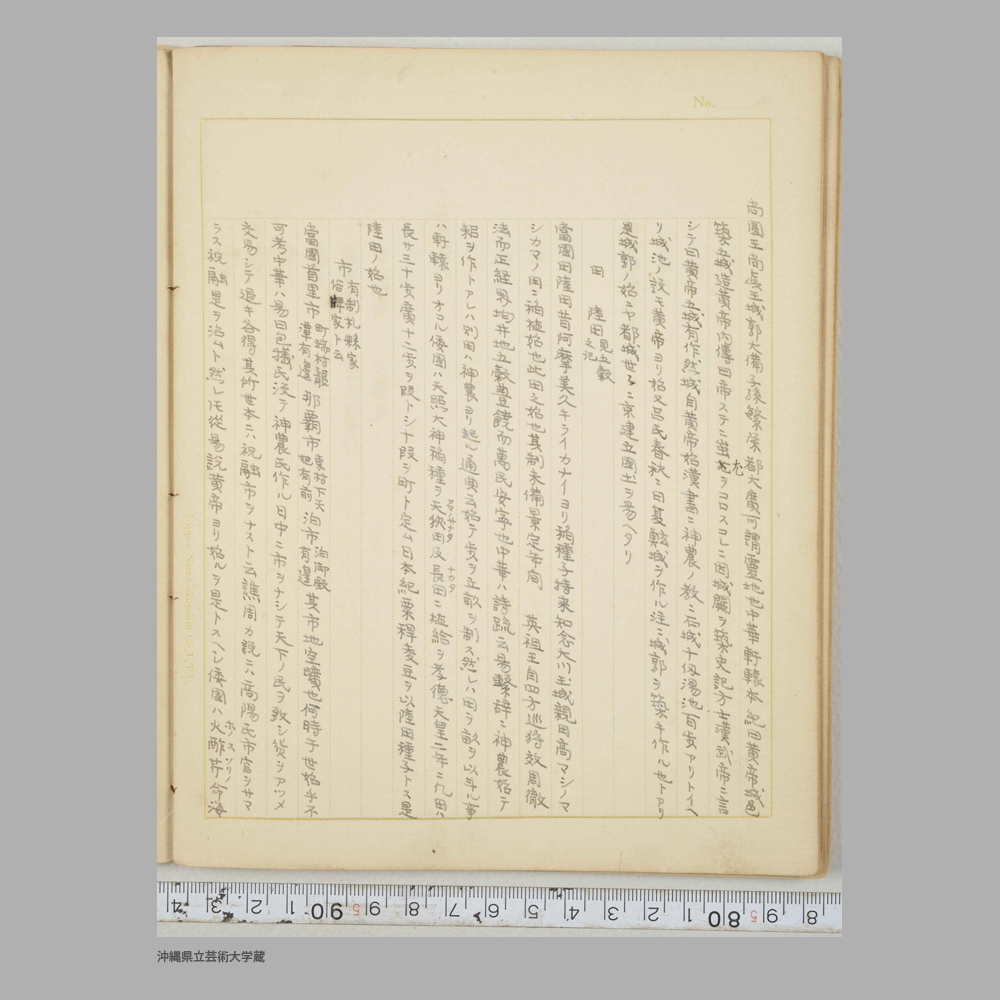 No.
尚圓王尚眞王城郭大備子孫繁栄都大廣可謂靈地也中華軒轅本紀曰黄帝城邑
築五城造黄帝内傳曰帝ステニ蚩尤ヲコロスコレニ因城闕ヲ築史記方士漢武帝ニ言
シテ曰黄帝五城有作然城自黄帝始漢書ニ神農ノ教ニ石城十仭湯池百歩アリトイヘ
リ城池ノ設モ黄帝ヨリ始又呂氏春秋ニ曰夏鯀城ヲ作ル注ニ城郭ヲ築キ作ル也トアリ
是城郭ノ始ニヤ都城世々ニ京建立國土ヲ易ヘタリ
田 陸田見五穀之記
當國田陸田昔阿摩美久キライカナイヨリ稲種子持来知念大川玉城親田高マシノマ
シカマノ田ニ稲植始也此田之始也其制未備景定年間 英祖王自四方巡狩效周徹
法而正経界均井地五穀豊饒而萬民安寧也中華ハ詩疏云易繋辞ニ神農始テ
耜ヲ作トアレハ則田ハ神農ヨリ起ル通典云始テ歩ヲ立畝ヲ制ス然レハ田ヲ畝ヲ以斗ル事
ハ軒轅ヨリオコル倭國ハ天照大神稲種ヲ天狹田及長田ニ植給ヲ孝德天皇二年ニ凡田ハ
アマノサナタ ナカタ
長サ三十歩廣十二歩ヲ段トシ十段ヲ町ト定ム日本紀粟稗麥豆ヲ以陸田種子トス是
陸田ノ始也
市 有制札縣家俗牌家ト云
當國首里市町端村龍潭有邉那覇市東村下天妃有前泊市泊御殿有邉其市地空曠也何時于世始乎不
可考中華ハ易曰包犠氏没テ神農氏作ル日中ニ市ヲナシテ天下ノ民ヲ致シ貨ヲアツメ
交易シテ退キ各得其所世本ニハ祝融市ヲナスト云譙周カ説ニハ高陽氏市官シサマ
ラス祝融是ヲ治ムト然レ圧從易説黄帝ヨリ始ルヲ是トスヘシ倭國ハ火酢芹命海
ホノスソリノ
8 9 5 80 1 2 3 4 5 6 7 8 9 5 90 1 2 3 4
沖縄県立芸術大学蔵